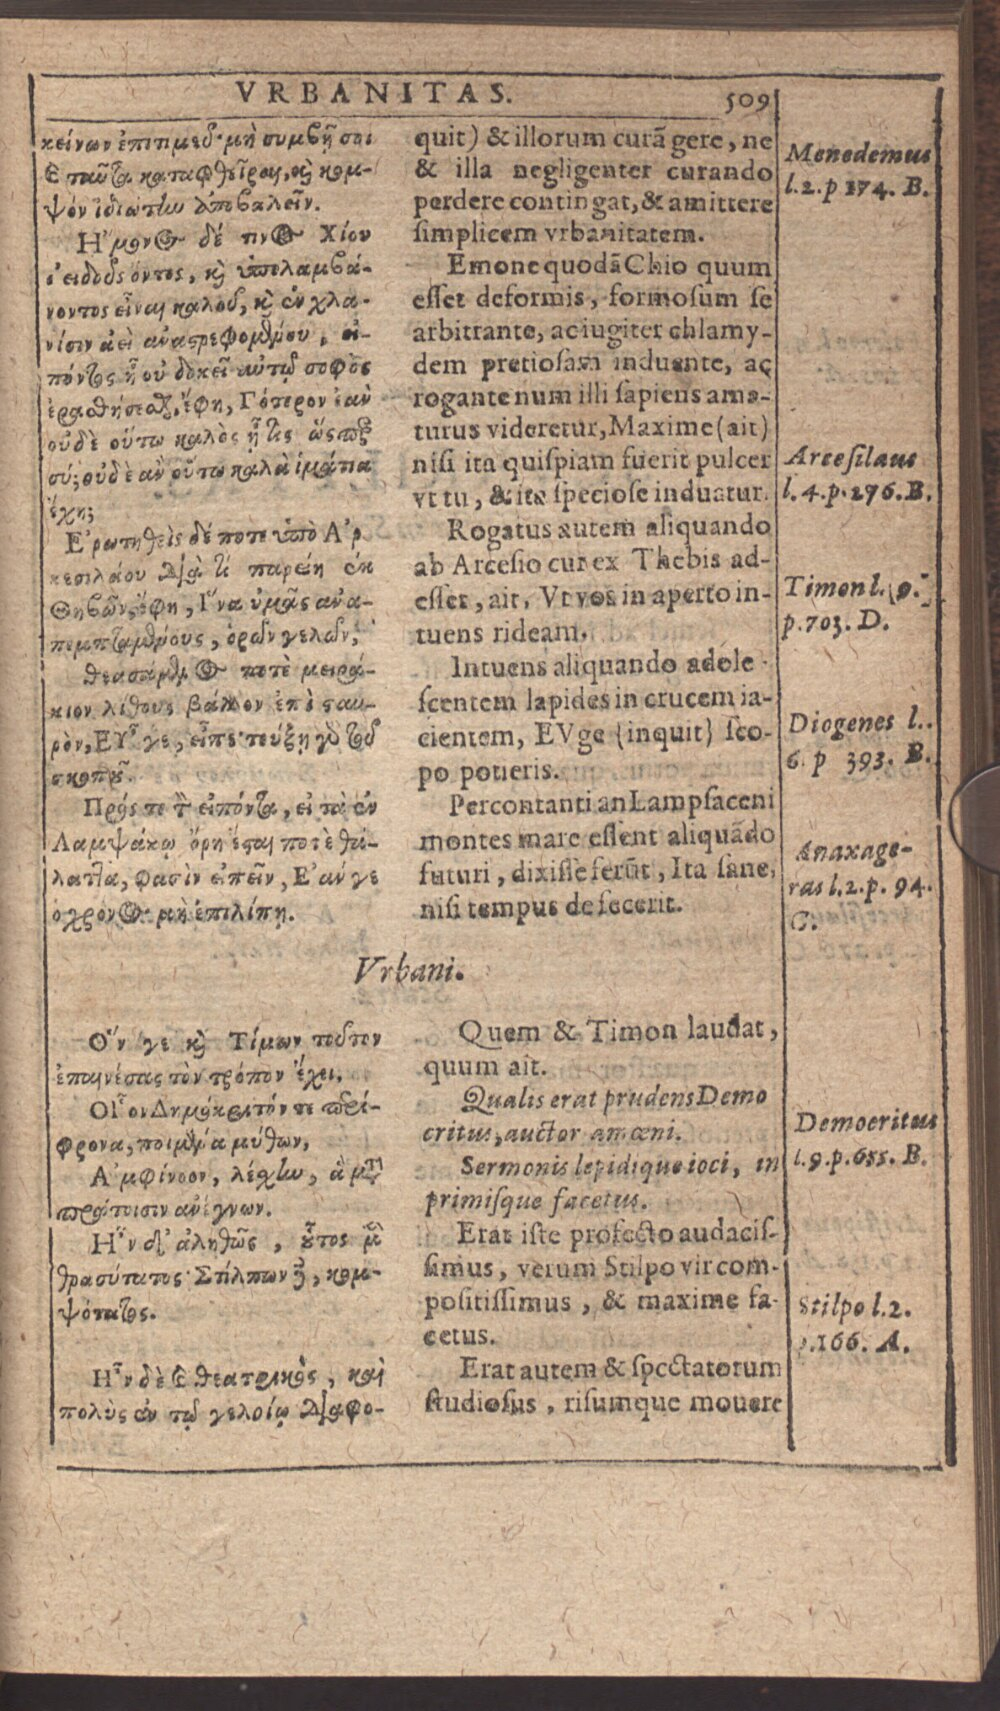 VRBANITAS. 509
κείνων ἐπιτιμεδ· μὴ συμβῇ σοι
ϗ ταῦτα καταφθεῖραι, ϗ κομ-
ψὸν ἰδιωτίω ἀποβαλεῖν.
Ἥμονος δέ τινος Χίου
ἀειδοῦς ὄντος, ϗ ὑπολαμβά-
νοντος εἶναι καλοῦ, ϗ ἐν χλα-
νίσιν ἀεὶ ἀναστρεφομένου, εἰ-
πόντος ἦ οὐ δοκεῖ αὐτῷ σοφὸς
ἐρασθήσεσθαι, ἔφη, Γότερον ἐὰν
οὐδὲ οὕτω καλὸς ᾖ τις ὥσπερ
σύ; οὐδὲ ἀν οὕτω καλὰ ἱμάτια
ἔχῃ;
Ἐρωτηθεὶς δέ ποτε ὑπὸ Ἀρ
κεσιλάου διὰ τί παρείη ἐκ
Θηβῶν, ἔφη, Ἵνα ὑμᾶς ἀνα-
πεπταμένους, ὁρῶν γελῶν,
θεασάμενος ποτὲ μειρά-
κιον λίθους βάλλον ἐπὶ σταυ-
ρὸν, Εὖ γε, εἶπε· τεύξῃ γὸ τοῦ
σκοποῦ.
Πρός τε τ εἰπόντα, εἰ τὰ ἐν
Λαμψάκῳ ὄρη ἔσται ποτὲ θά-
λαττα, φασὶν εἰπεῖν, Ἐάν γε
ὁ χρόνος μὴ ἐπιλίπῃ.
quit) & illorum curã gere, ne
& illa negligenter curando
perdere contingat, & amittere
simplicem vrbanitatem.
Emone quodã Chio quum
esset deformis, formosum se
arbitrante, ac iugiter chlamy-
dem pretiosam induente, ac
rogante num illi sapiens ama-
turus videretur, Maxime (ait)
nisi ita quispiam fuerit pulcer
vt tu, & ita speciose induatur.
Rogatus autem aliquando
ab Arcesio cur ex Thebis ad-
esset, ait, Vt vos in aperto in-
tuens rideam.
Intuens aliquando adole-
scentem lapides in crucem ia-
cientem, EVge (inquit) sco-
po potieris.
Percontanti an Lampsaceni
montes mare essent aliquãdo
futuri, dixisse ferũt, Ita sane,
nisi tempus defecerit.
Menedemus
l.2.p 174. B.
Arcesilaus
l.4.p.276.B.
Timon l. 9.
p.703. D.
Diogenes l.
6. p 393. B.
Anaxago-
ras l.2.p. 94.
C.
Vrbani.
Ὅν γε ϗ Τίμων τοῦτον
ἐπαινέσας τὸν τρόπον ἔχει.
Οἷον Δημόκριτόν τε περί-
φρονα, ποιμένα μύθων,
Ἀμφίνοον, λέσχίω, ἃ μτ
πρώτοισιν ἀνέγνων.
Ἦν δ' ἀληθῶς, οὗτος μ
θρασύτατος· Στίλπων δὲ, κομ-
ψότατος.
Ἦν δὲ ϗ θεατρικὸς, καὶ
πολὺς ἐν τῷ γελοίῳ διαφο-
Quem & Timon laudat,
quum ait.
Qualis erat prudens Demo
critus, auctor amœni.
Sermonis lepidique ioci, in
primisque facetus.
Erat iste profecto audacis-
simus, verum Stilpo vir com-
positissimus, & maxime fa-
cetus.
Erat autem & spectatorum
studiosus, risumque mouere
Democritus
l.9.p.655. B.
Stilpo l.2.
p.166. A.